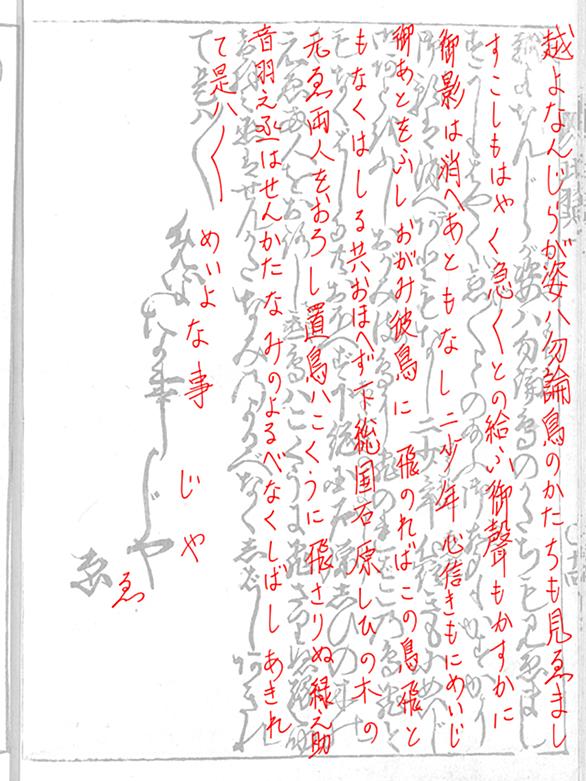 越よなんじらが姿ハ勿論鳥のかたちも見ゑまし
すこしもはやく急くとの給ふ御聲もかすかに
御影は消へあともなし二少年心信きもにめいじ
御あとをふしおがみ彼鳥に飛のればこの鳥飛と
もなくはしる共おほへず下総国石原しひの木の
元ゑ両人をおろし置鳥ハこくうに飛さりぬ緑之助
音羽之丞はせんかたなみのよるべなくしばしあきれ
て是ハ〳〵
めいよな事じや
ゑ